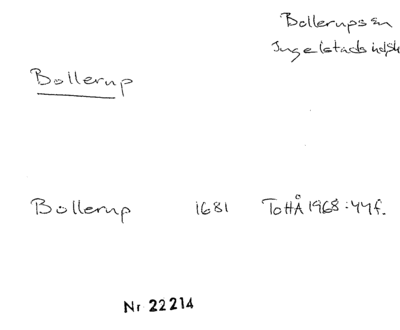 Bollerups sn
Ingelstads hd, Sk
Bollerup
Bollerup 1681 ToHÅ 1968:44f.
Nr 22214